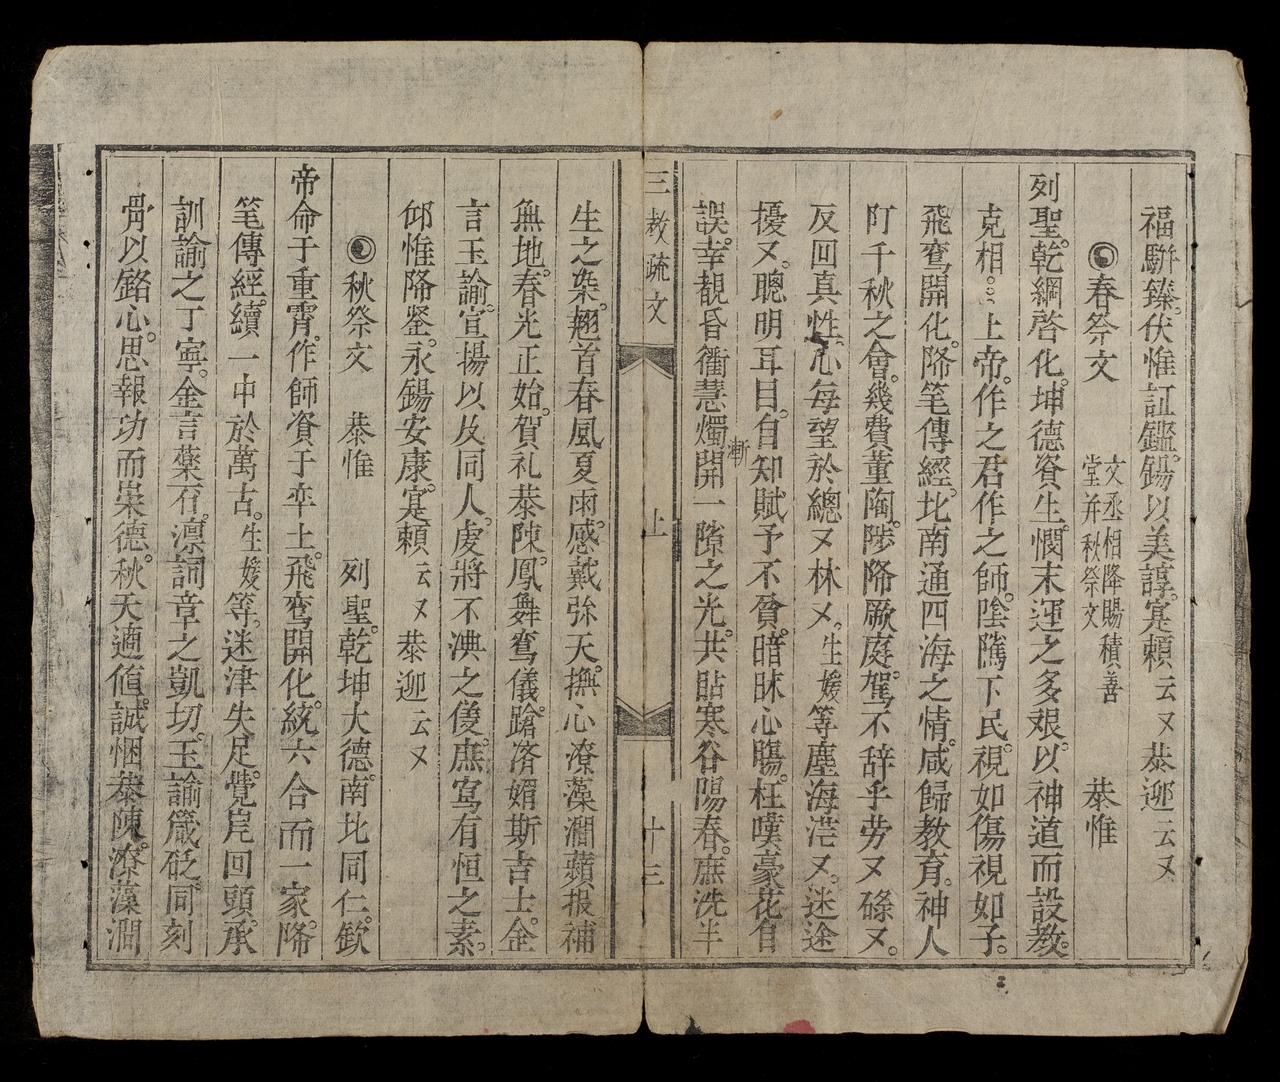 福駢臻。伏惟証鑑。錫以美諄。寔賴云又恭迎云又
春祭文 文丞相降賜積善堂并秋祭文 恭惟
列聖。乾綱啓化。坤德資生。憫末運之多艱。以神道而設教。
克相上帝。作之君作之師。陰隲下民。視如傷視如子。
飛鸞開化。降笔傳經。北南通四海之情。咸歸教育。神人
阿千秋之會。幾費董陶。陟降厥庭。駕不辞乎劳又碌又。
反回真性。心每望於總又林又。生媛等塵海茫又。迷途
擾又。聰明耳目。自知賦予不貧。暗昧心膓。枉嘆豪花自
誤。幸覩昏衢慧燭。開一隙之光。共貼寒谷陽春。庶洗半
漸
三教疏文 上 十三
生之染。翹首春風夏雨。感戴弥天。撫心潦藻澗蘋。报補
無地。春光正始。賀礼恭陳。鳳舞鸾儀。蹌濟媚斯吉士。金
言玉諭。宣揚以及同人。虔將不腆之儀。庶寫有恒之素。
仰惟降鉴。永錫安康。寔賴云又恭迎云又
秋祭文 恭惟 列聖。乾坤大德。南北同仁。欽
帝命于重霄。作師資于率土。飛鸞開化。統六合而一家。降
笔傳經。續一中於萬古。生媛等。迷津失足。覺岸回頭。承
訓諭之丁寧。金言藥石。凛詞章之凱切。玉諭箴砭。同刻
骨以銘心。思報功而崇德。秋天適值。誠悃恭陳。潦藻澗